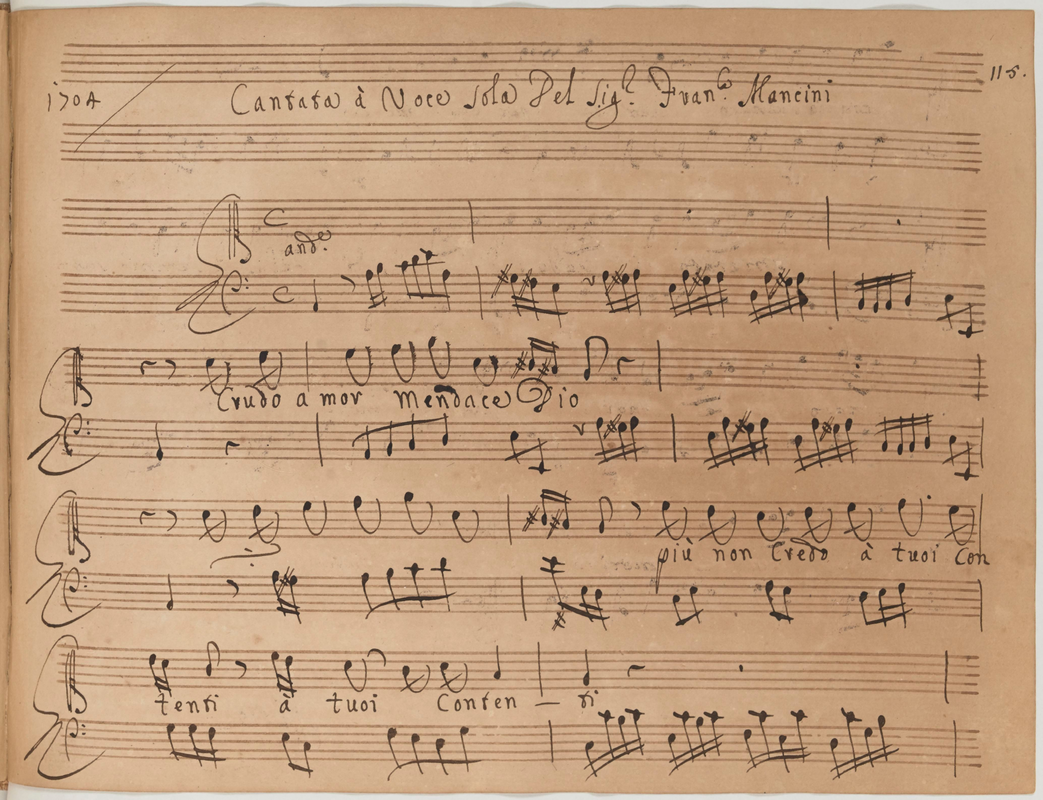 115.
1704 Cantata à Voce sola Del Sig.r Fran.co Mancini
and.e
Crudo amor Mendace Dio
più non Credo à tuoi Con
tenti à tuoi Conten — ti